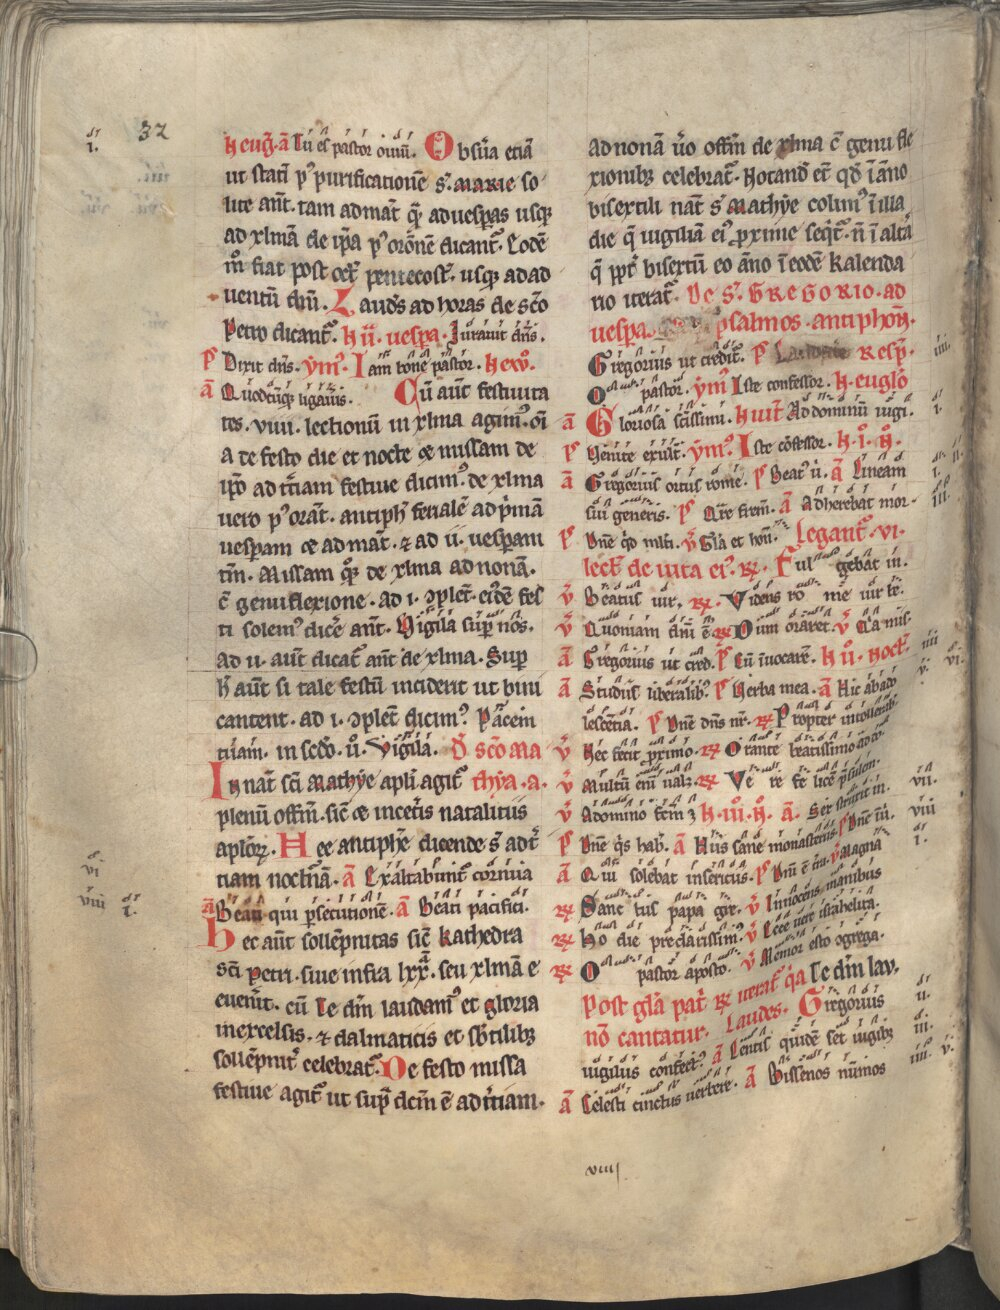 32
H eug̃. a Tu es pastor ouiũ. Obsũa etiã
ut statĩ pꝰ purificationẽ s. marie so
lite añt. tam ad mat̃ q̃ ad uesꝑas usqꝫ
ad xlmã de ip̃a pꝰ orõnẽ dicant̃. Eodẽ
m̊ fiat post oct̃ pentecost̃. usqꝫ ad ad
uentũ dñi. Laudes ad horas de sc̃o
Petro dicant̃. H ii. uespa. Iurauit dñs.
p̃ Dixit dñs. ymꝰ. Iam bone pastor. H
a Quodcũqꝫ ligaũis. Cũ aũt festiuita
tes. viiii. lectionũ in xlma agimꝰ. oĩ
a de festo die et nocte ⁊ missam de
ip̃o ad t̃ciam festiue dicimꝰ. de xlma
uero pꝰ orat̃. antiph̃ ferialẽ ad p̃mã
uesperam ⁊ ad mat̃. ⁊ ad ii. uesꝑam
tm̃. Missam q̊ꝫ de xlma ad nonã.
c̃ genuflexione. ad i. ꝯplet̃. eidẽ fes
ti solemꝰ dicẽ añt. Vigila sup̃ nos.
ad ii. aũt dicat̃ añt de xlma. Sup̃
h̃ aũt si tale festũ inciderit ut bini
cantent. ad i. ꝯplet̃ dicimꝰ. Pacem
tuam. in sc̃do. ũ. Vigila. D̃ sc̃o ma
In nat̃ sc̃i mathye apl̃i agit̃ thya. a.
plenũ offm̃. sic̃ ⁊ in cet̃is natalitiis
aplo̴ꝝ. Hee antiphẽ dicende s̃ ad t̃
tiam noct̃nã. a Exaltabunt̃ cornua
a Beati qui ꝑsecutionẽ. a Beati pacifici.
Hec aũt sollẽpnitas sic̃ kathedra
sc̃i petri. siue infra lxx̃. seu xlmã e
euenit̃. cũ Te dm̃ laudamꝰ et gloria
in excelsis. ⁊ dalmaticis et sb̃tilibꝫ
sollẽpnit̃ celebrat̃. De festo missa
festiue agit̃ ut sup̃ dc̃m ẽ ad t̃ciam.
ad nonã ũo offm̃ de xlma c̃ genu fle
xionibꝫ celebrat̃. Notand̃ et̃ qđ ĩ ãno
bisextili nat̃ s̃ mathye colimꝰ ĩ illa
die q̃ uigiliã eiꝰ ꝓxime seq̃t̃. ñ ĩ alt̃a
q̃ ꝓpt̃ bisextũ eo ãno ĩ eodẽ kalenda
rio iterat̃. De s̃. GREGORIO. ad
uespa. psalmos. antiphoñ.
Gregorius ut credit̃. p̃ Laudate Resp̃.
O pastor. ymꝰ Iste confessor. H. eugl̃o
a Gloriosa sc̃issimi. H uit̃ Ad dominũ uigi.
p̃ Venite exult̃. ymꝰ. Iste cõfessor. H. i. N̊.
a Gregorius ortus rome. p̃ Beatꝰ ũ. a Lineam
sui generis. p̃ Qr̃e frem̃. a Adherebat mor
p̃ Dñe qđ m̃lti. v̊ Gl̃a et hoñ. Legant̃. vi.
lect̃. de uita eiꝰ. ℞. Fulgebat in.
v̊ Beatus uir. ℞. Videns rome uir be.
v̊ Quoniam dñi ẽ. ℞ Dum oraret. v̊ Tã
a Gregorius ut cred. p̃ Cũ ĩuocarẽ. H ii. noct̃.
a Studiis liberalibꝰ. p̃ Verba mea. a Hic ab ado
lescẽtia. p̃ Dñe dñs nr̃. ℞ Propter intollerab
v̊ Hec fecit ꝓximo. ℞ Orante beatissimo
v̊ Multũ eni ualꝫ. ℞ Vere fe licẽ p̃sulem.
v̊ A domino fc̃mꝫ H. iii. N̊. a. Sex struxit in.
p̃ Dñe q̃s hab. a Hiis sane monasteriis p̃ Dñe ĩ
a Qui solebat in sericus. p̃ Dñi ẽ t̃ra. v̊ Magna
℞ Sane tus papa gre. v̊ Innocens manibus
℞ Ho die preclarissimꝰ. v̊ Ecce uere israhelita.
℞ O pastor aposto. v̊ Memor esto ꝯgrega.
Post gl̃a pat̃ ℞ iterat̃ q̃a Te dm̃ lau.
nõ cantatur. Laudes. Gregorius
uigiliis confect̃ꝰ. a Lentis quidẽ set iugibꝫ
a Celesti cinctus uertere. a Bissenos nũmos
viiii